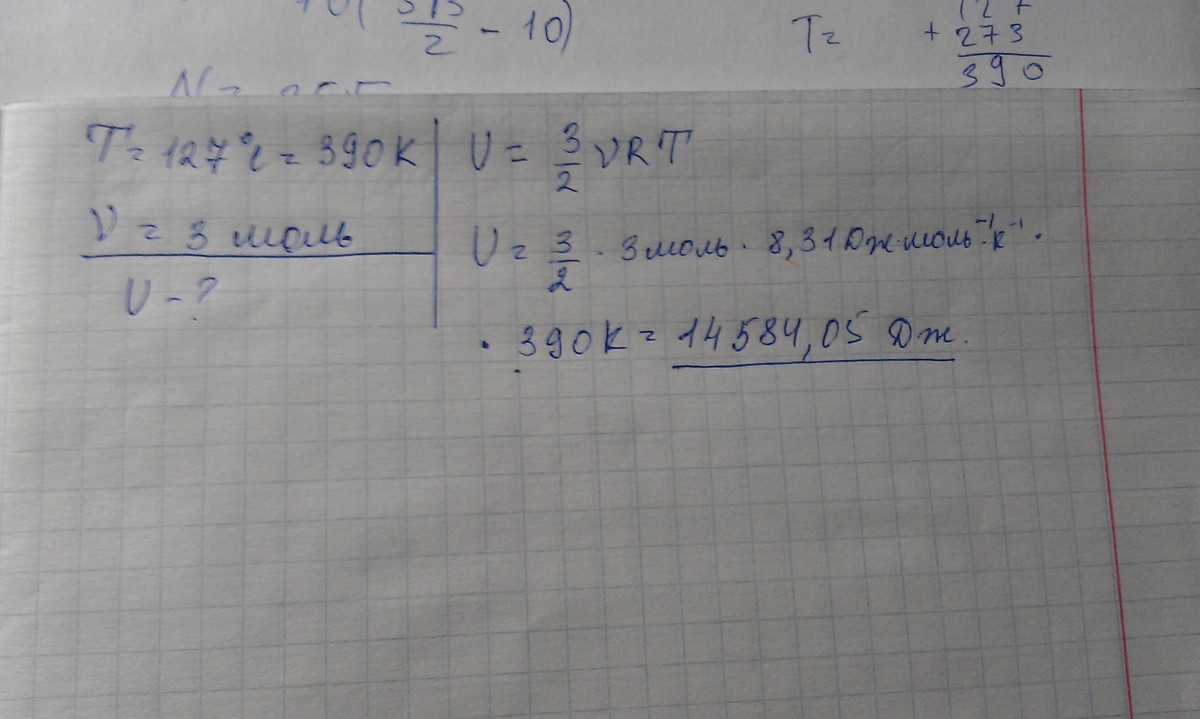 2 - 10)
T=
+ 273
390
T = 127°C = 390 K
ν = 3 моль
U - ?
U = 3/2 νRT
U = 3/2 · 3 моль · 8,31 Дж·моль⁻¹·К⁻¹ ·
· 390 K = 14584,05 Дж.